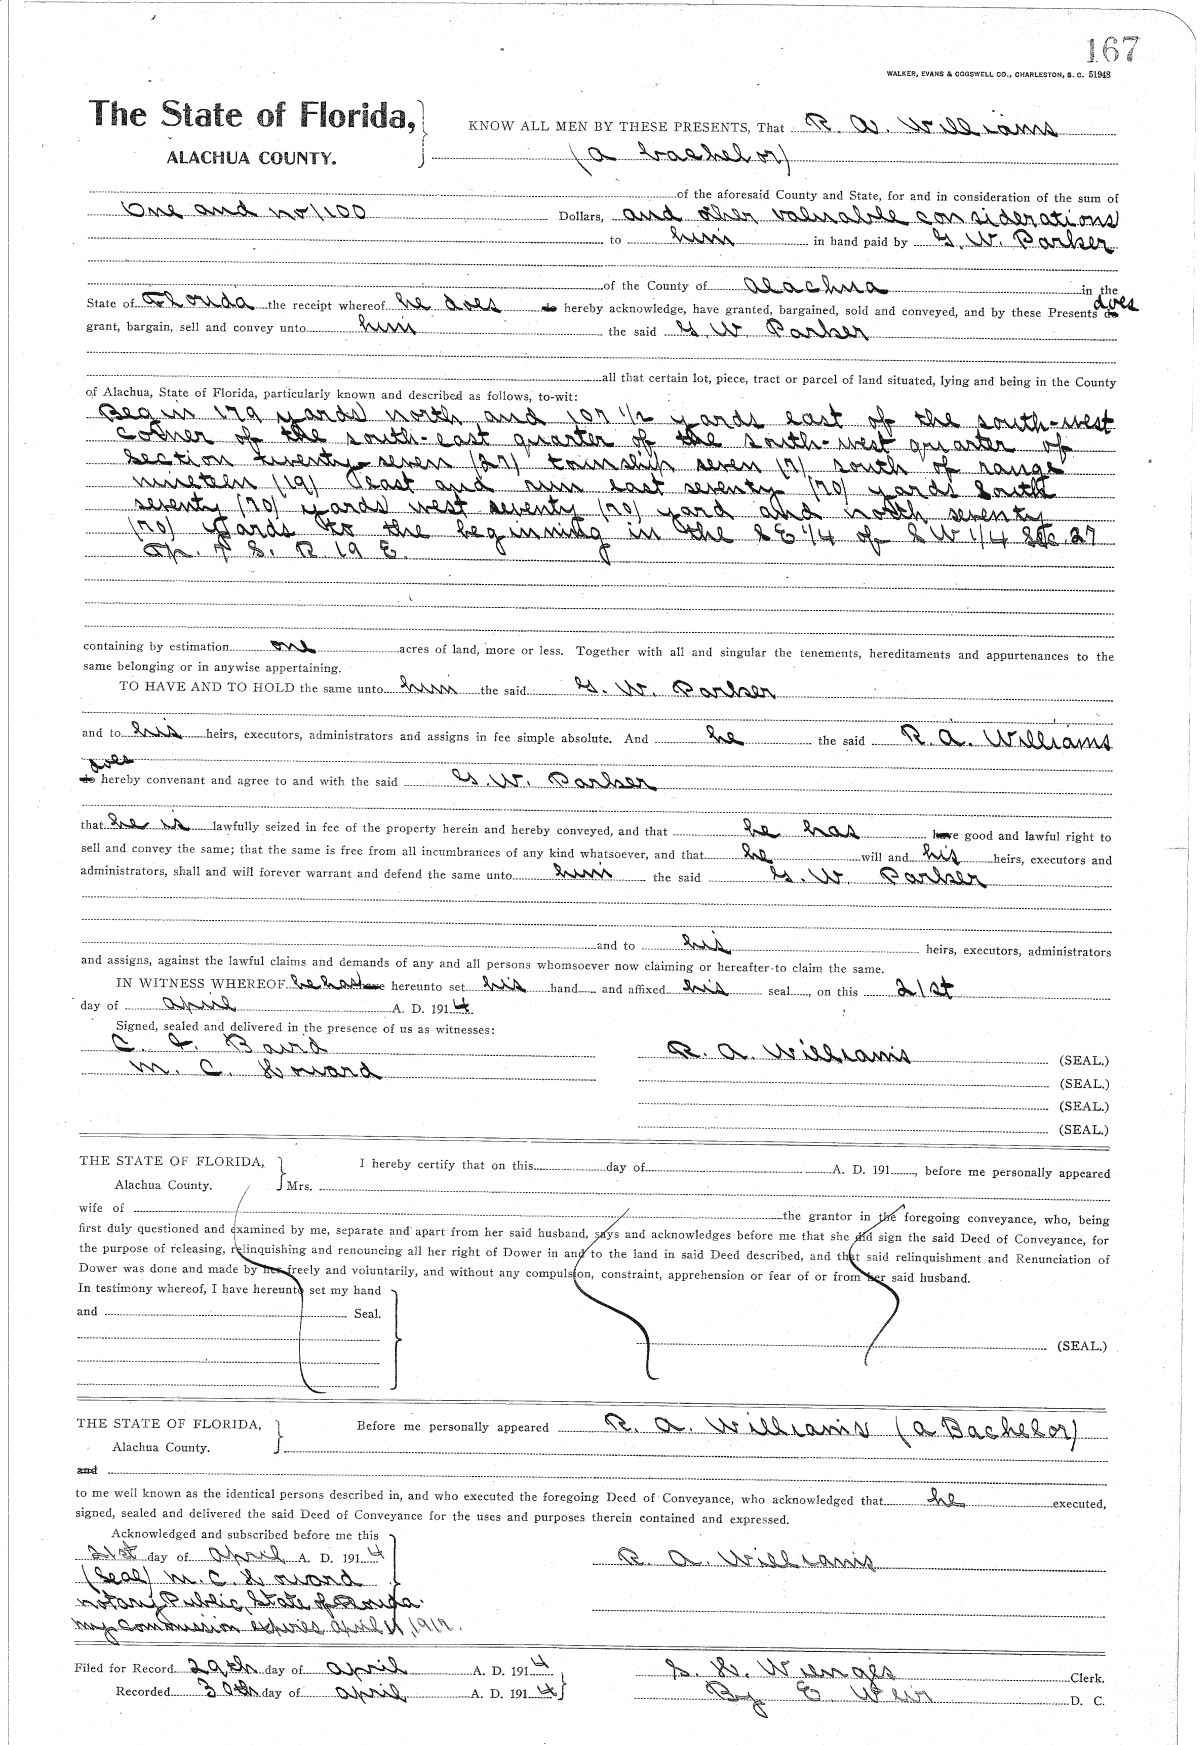 167
WALKER, EVANS & COGSWELL CO., CHARLESTON, S. C. 51948
The State of Florida,
ALACHUA COUNTY.
KNOW ALL MEN BY THESE PRESENTS, That R. A. Williams
(a bachelor)
of the aforesaid County and State, for and in consideration of the sum of
One and no/100 Dollars, and other valuable considerations
to him in hand paid by G. W. Parker
of the County of Alachua in the
State of Florida the receipt whereof he does do hereby acknowledge, have granted, bargained, sold and conveyed, and by these Presents do does
grant, bargain, sell and convey unto him the said G. W. Parker
all that certain lot, piece, tract or parcel of land situated, lying and being in the County
of Alachua, State of Florida, particularly known and described as follows, to-wit:
Begin 179 yards north and 107 1/2 yards east of the south-west
corner of the south-east quarter of the south-west quarter of
section twenty-seven (27) township seven (7) south of range
nineteen (19) east and run east seventy (70) yards South
seventy (70) yards west seventy (70) yard and north seventy
(70) yards to the beginning in the SE 1/4 of SW 1/4 Sec. 27
Tp. 7 S. R 19 E.
containing by estimation one acres of land, more or less. Together with all and singular the tenements, hereditaments and appurtenances to the
same belonging or in anywise appertaining.
TO HAVE AND TO HOLD the same unto him the said G. W. Parker
and to his heirs, executors, administrators and assigns in fee simple absolute. And he the said R. A. Williams
does
do hereby convenant and agree to and with the said G. W. Parker
that he is lawfully seized in fee of the property herein and hereby conveyed, and that he has have good and lawful right to
sell and convey the same; that the same is free from all incumbrances of any kind whatsoever, and that he will and his heirs, executors and
administrators, shall and will forever warrant and defend the same unto him the said G. W. Parker
and to his heirs, executors, administrators
and assigns, against the lawful claims and demands of any and all persons whomsoever now claiming or hereafter to claim the same.
IN WITNESS WHEREOF he has hereunto set his hand and affixed his seal, on this 21st
day of April A. D. 1914.
Signed, sealed and delivered in the presence of us as witnesses:
C. Baird
M. C. Howard
R. A. Williams (SEAL.)
(SEAL.)
(SEAL.)
(SEAL.)
THE STATE OF FLORIDA,
Alachua County.
I hereby certify that on this day of A. D. 191 , before me personally appeared
Mrs.
wife of the grantor in the foregoing conveyance, who, being
first duly questioned and examined by me, separate and apart from her said husband, says and acknowledges before me that she did sign the said Deed of Conveyance, for
the purpose of releasing, relinquishing and renouncing all her right of Dower in and to the land in said Deed described, and that said relinquishment and Renunciation of
Dower was done and made by her freely and voluntarily, and without any compulsion, constraint, apprehension or fear of or from her said husband.
In testimony whereof, I have hereunto set my hand
and Seal.
(SEAL.)
THE STATE OF FLORIDA,
Alachua County.
Before me personally appeared R. A. Williams (a Bachelor)
and
to me well known as the identical persons described in, and who executed the foregoing Deed of Conveyance, who acknowledged that he executed,
signed, sealed and delivered the said Deed of Conveyance for the uses and purposes therein contained and expressed.
Acknowledged and subscribed before me this
21st day of April A. D. 1914
R. A. Williams
(Seal) M. C. Howard
Notary Public, State of Florida.
My Commission expires April 1917.
Filed for Record 29th day of April A. D. 1914
S. H. Wienges Clerk.
Recorded 30th day of April A. D. 1914
By E Weir D. C.